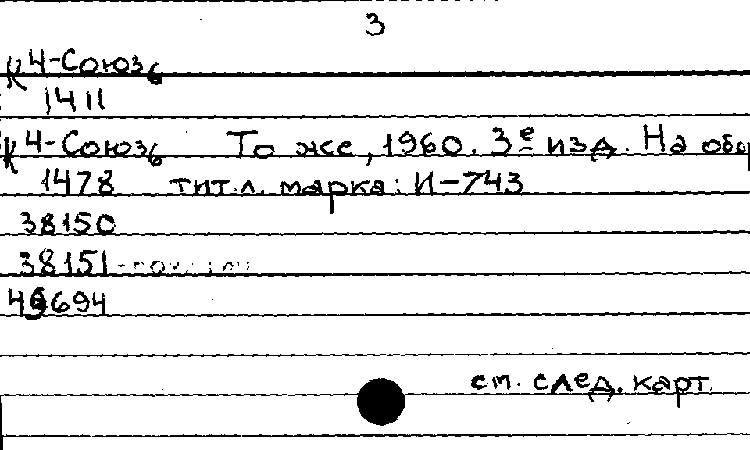 3
К 4-Союз6
1411
К 4-Союз6 То же, 1960. 3е изд. На обор
1478 тит.л. марка: И-743
38150
38151
694
см. след. карт.